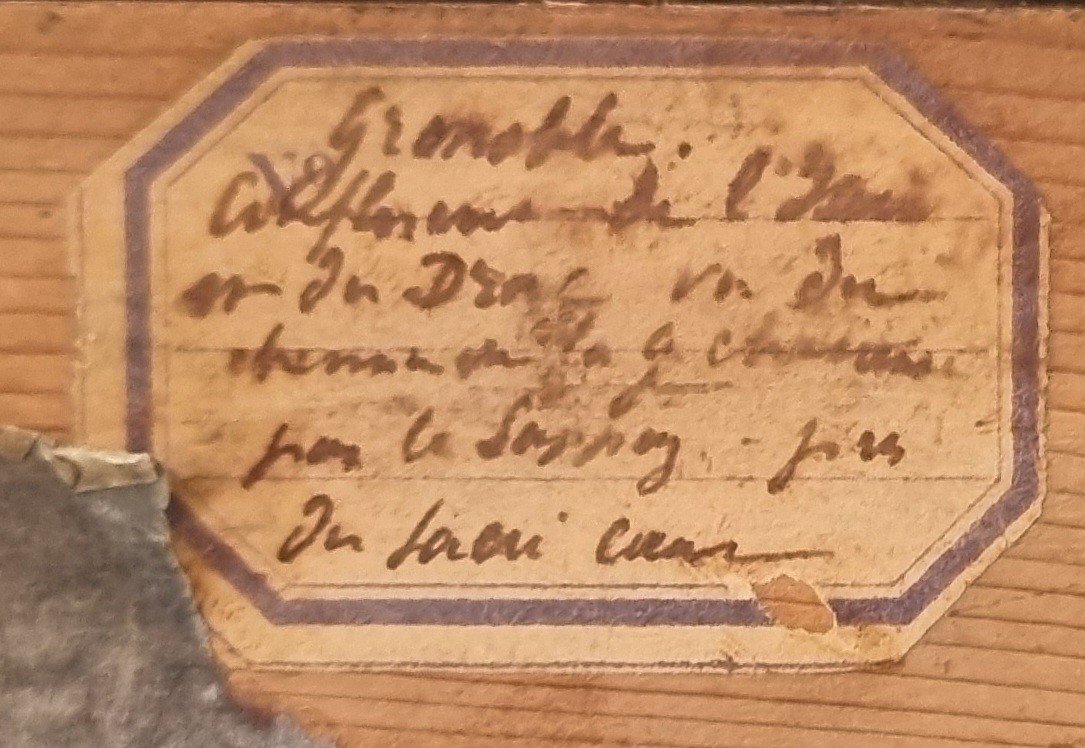 Grenoble.
Confluent de l'Isère
et du Drac vu du
chemin de la gde chartreuse
par le Sappey. près
du Sacré cœur